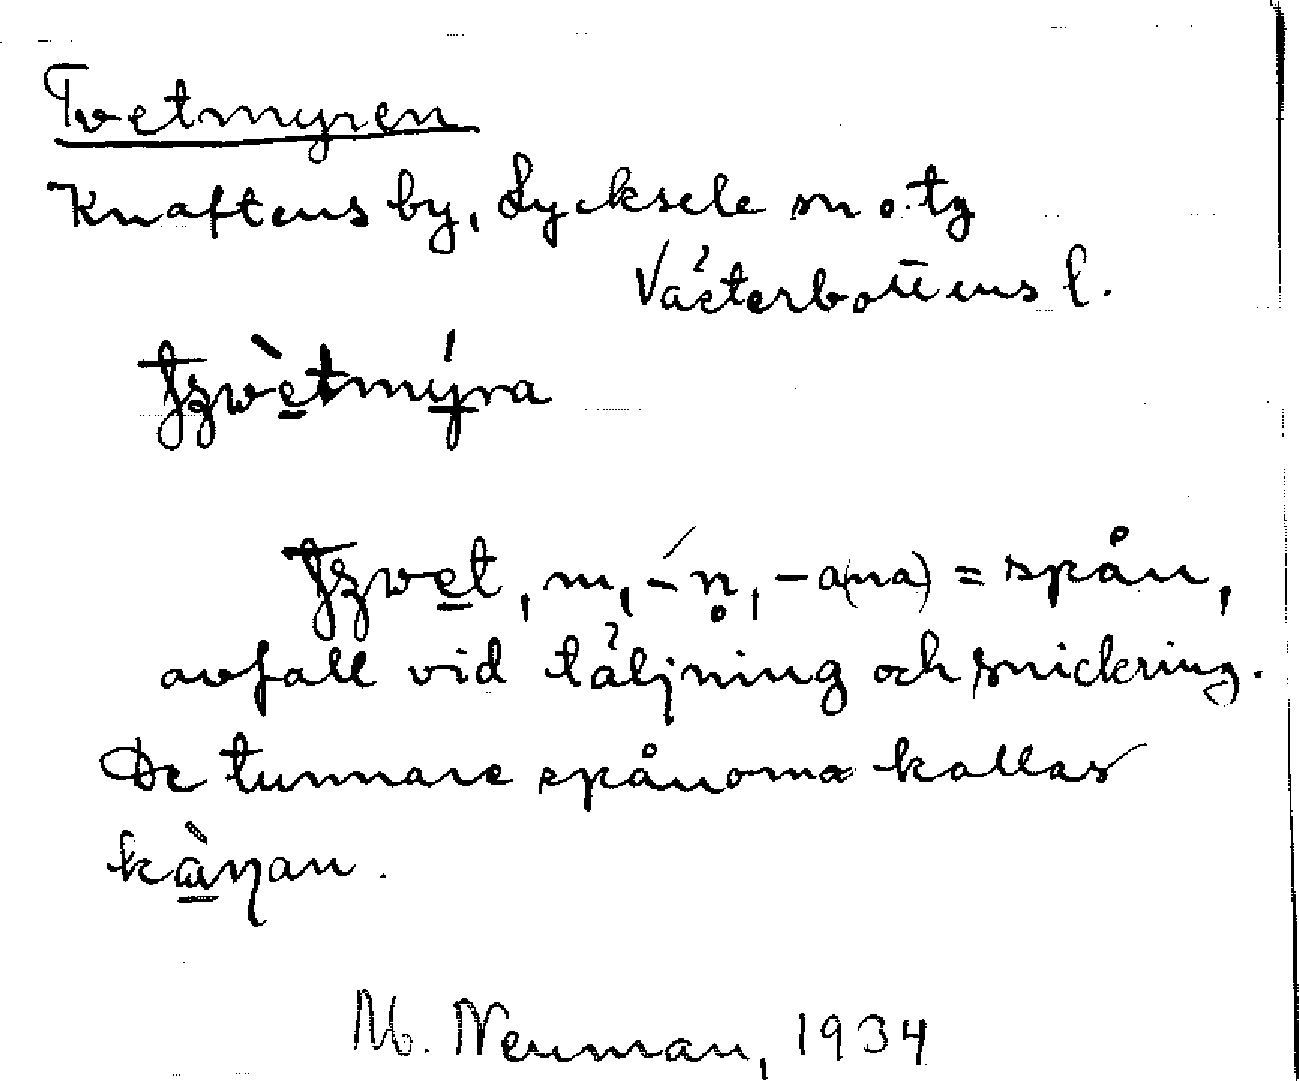 Tvetmyren
Knaftens by, Lycksele sn o. tg
Västerbottens l.
Tʒwètmýra
Tʒwet, m, -́n̥, -a(na) = spån,
avfall vid täljning och snickring.
De tunnare spånorna kallas
kàŋan.
M. Neuman, 1934